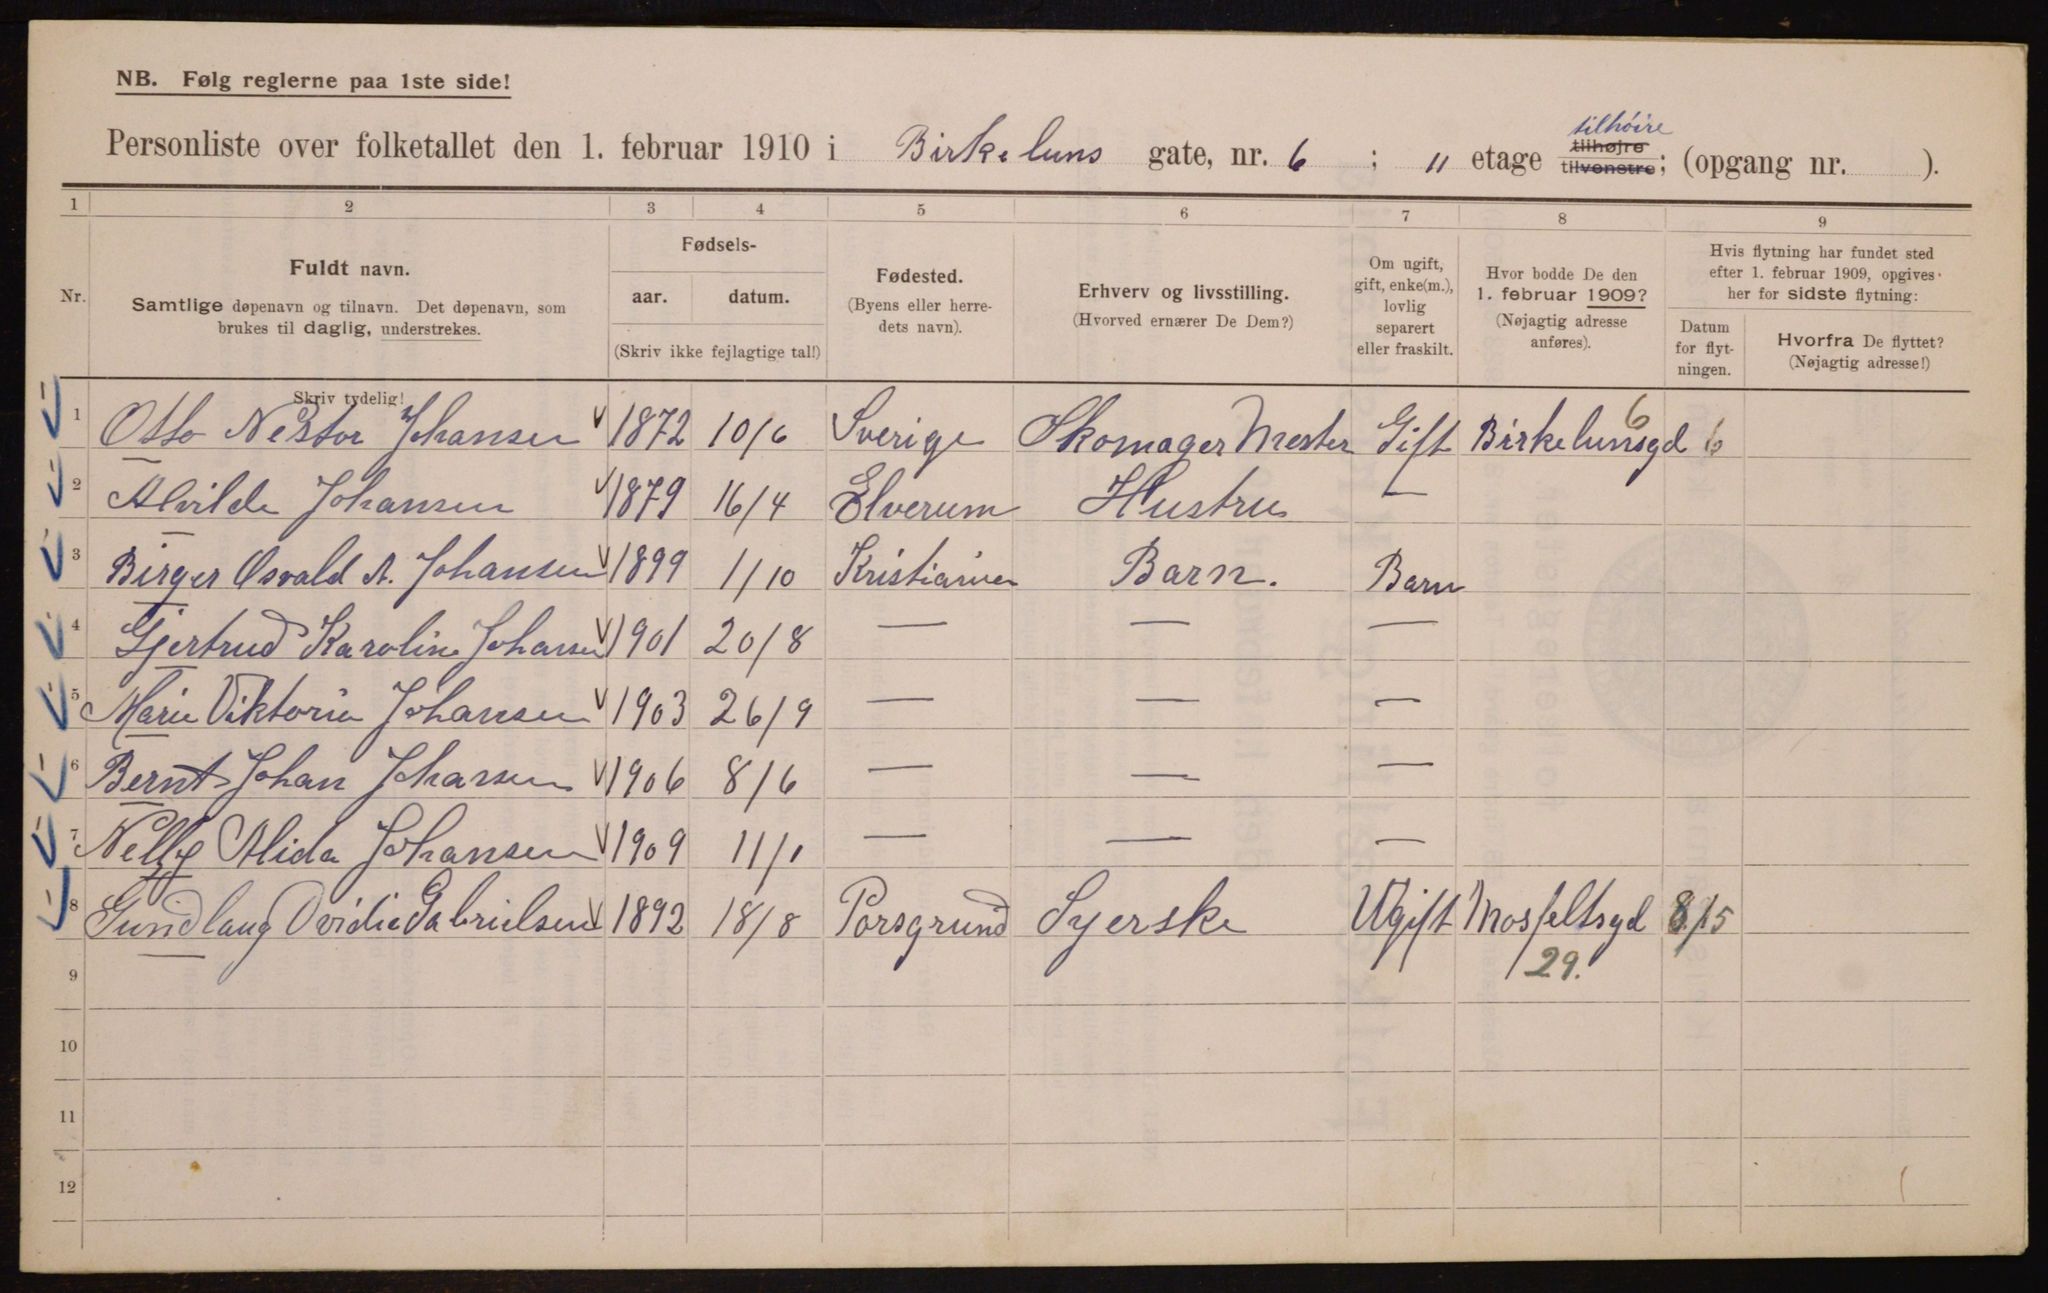 NB. Følg reglerne paa 1ste side!
tilhöire
Personliste over folketallet den 1. februar 1910 i Birkeluns gate, nr. 6 ; 11 etage tilhøjre tilvenstre; (opgang nr. ).
1 2 3 4 5 6 7 8 9
Nr.
Fuldt navn.
Samtlige døpenavn og tilnavn. Det døpenavn, som
brukes til daglig, understrekes.
Skriv tydelig!
Fødsels-
aar. datum.
(Skriv ikke fejlagtige tal!)
Fødested.
(Byens eller herre-
dets navn).
Erhverv og livsstilling.
(Hvorved ernærer De Dem?)
Om ugift,
gift, enke(m.),
lovlig
separert
eller fraskilt.
Hvor bodde De den
1. februar 1909?
(Nøjagtig adresse
anføres).
Hvis flytning har fundet sted
efter 1. februar 1909, opgives
her for sidste flytning:
Datum
for flyt-
ningen.
Hvorfra De flyttet?
(Nøjagtig adresse!)
1 Otto Nestor Johansen 1872 10/6 Sverige Skomager Mester Gift Birkelunsgd 6
2 Alvilde Johansen 1879 16/4 Elverum Hustru —
3 Birger Osvald A. Johansen 1899 1/10 Kristiania Barn. Barn
4 Gjertrud Karoline Johansen 1901 20/8 — — —
5 Marie Viktoria Johansen 1903 26/9 — — —
6 Bernt Johan Johansen 1906 8/6 — — —
7 Nelly Alida Johansen 1909 11/1 — — —
8 Gundlaug Ovidie Gabrielsen 1892 18/8 Porsgrund Syerske Ugift Mosfeltsgd 8/15
29.
9
10
11
12